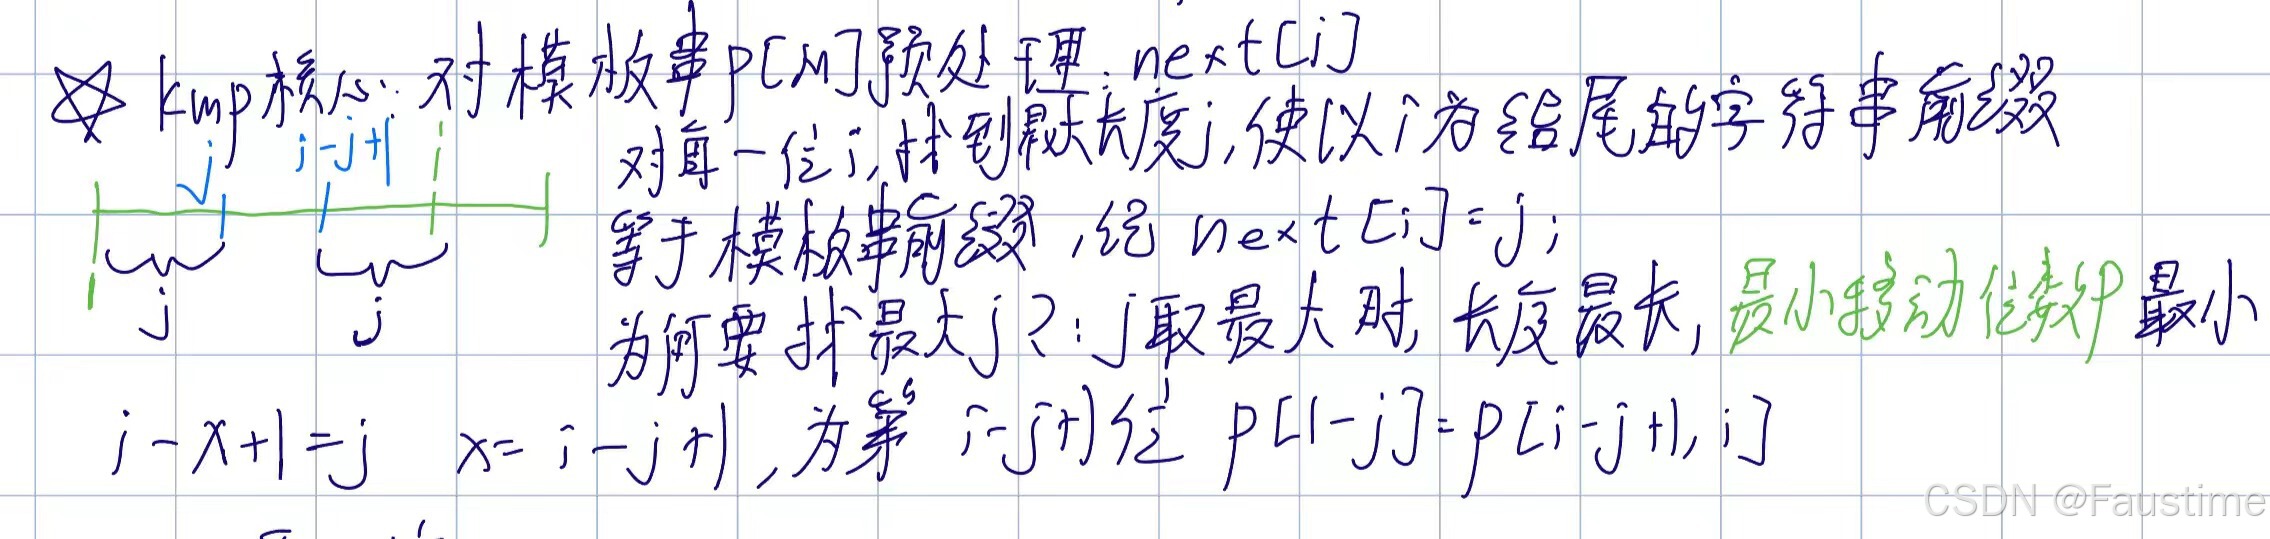 ☆ kmp核心: 对模板串p[M]预处理: next[i]
对每一位i,找到最大长度j,使以i为结尾的字符串前缀
等于模板串前缀,给 next[i]=j;
为何要找最大j?:j取最大时,长度最长,最小移动位数p最小
j i-j+1 i
1
j j
i-x+1=j x=i-j+1,为第 i-j+1位 p[1-j]=p[i-j+1,i]
CSDN @Faustime